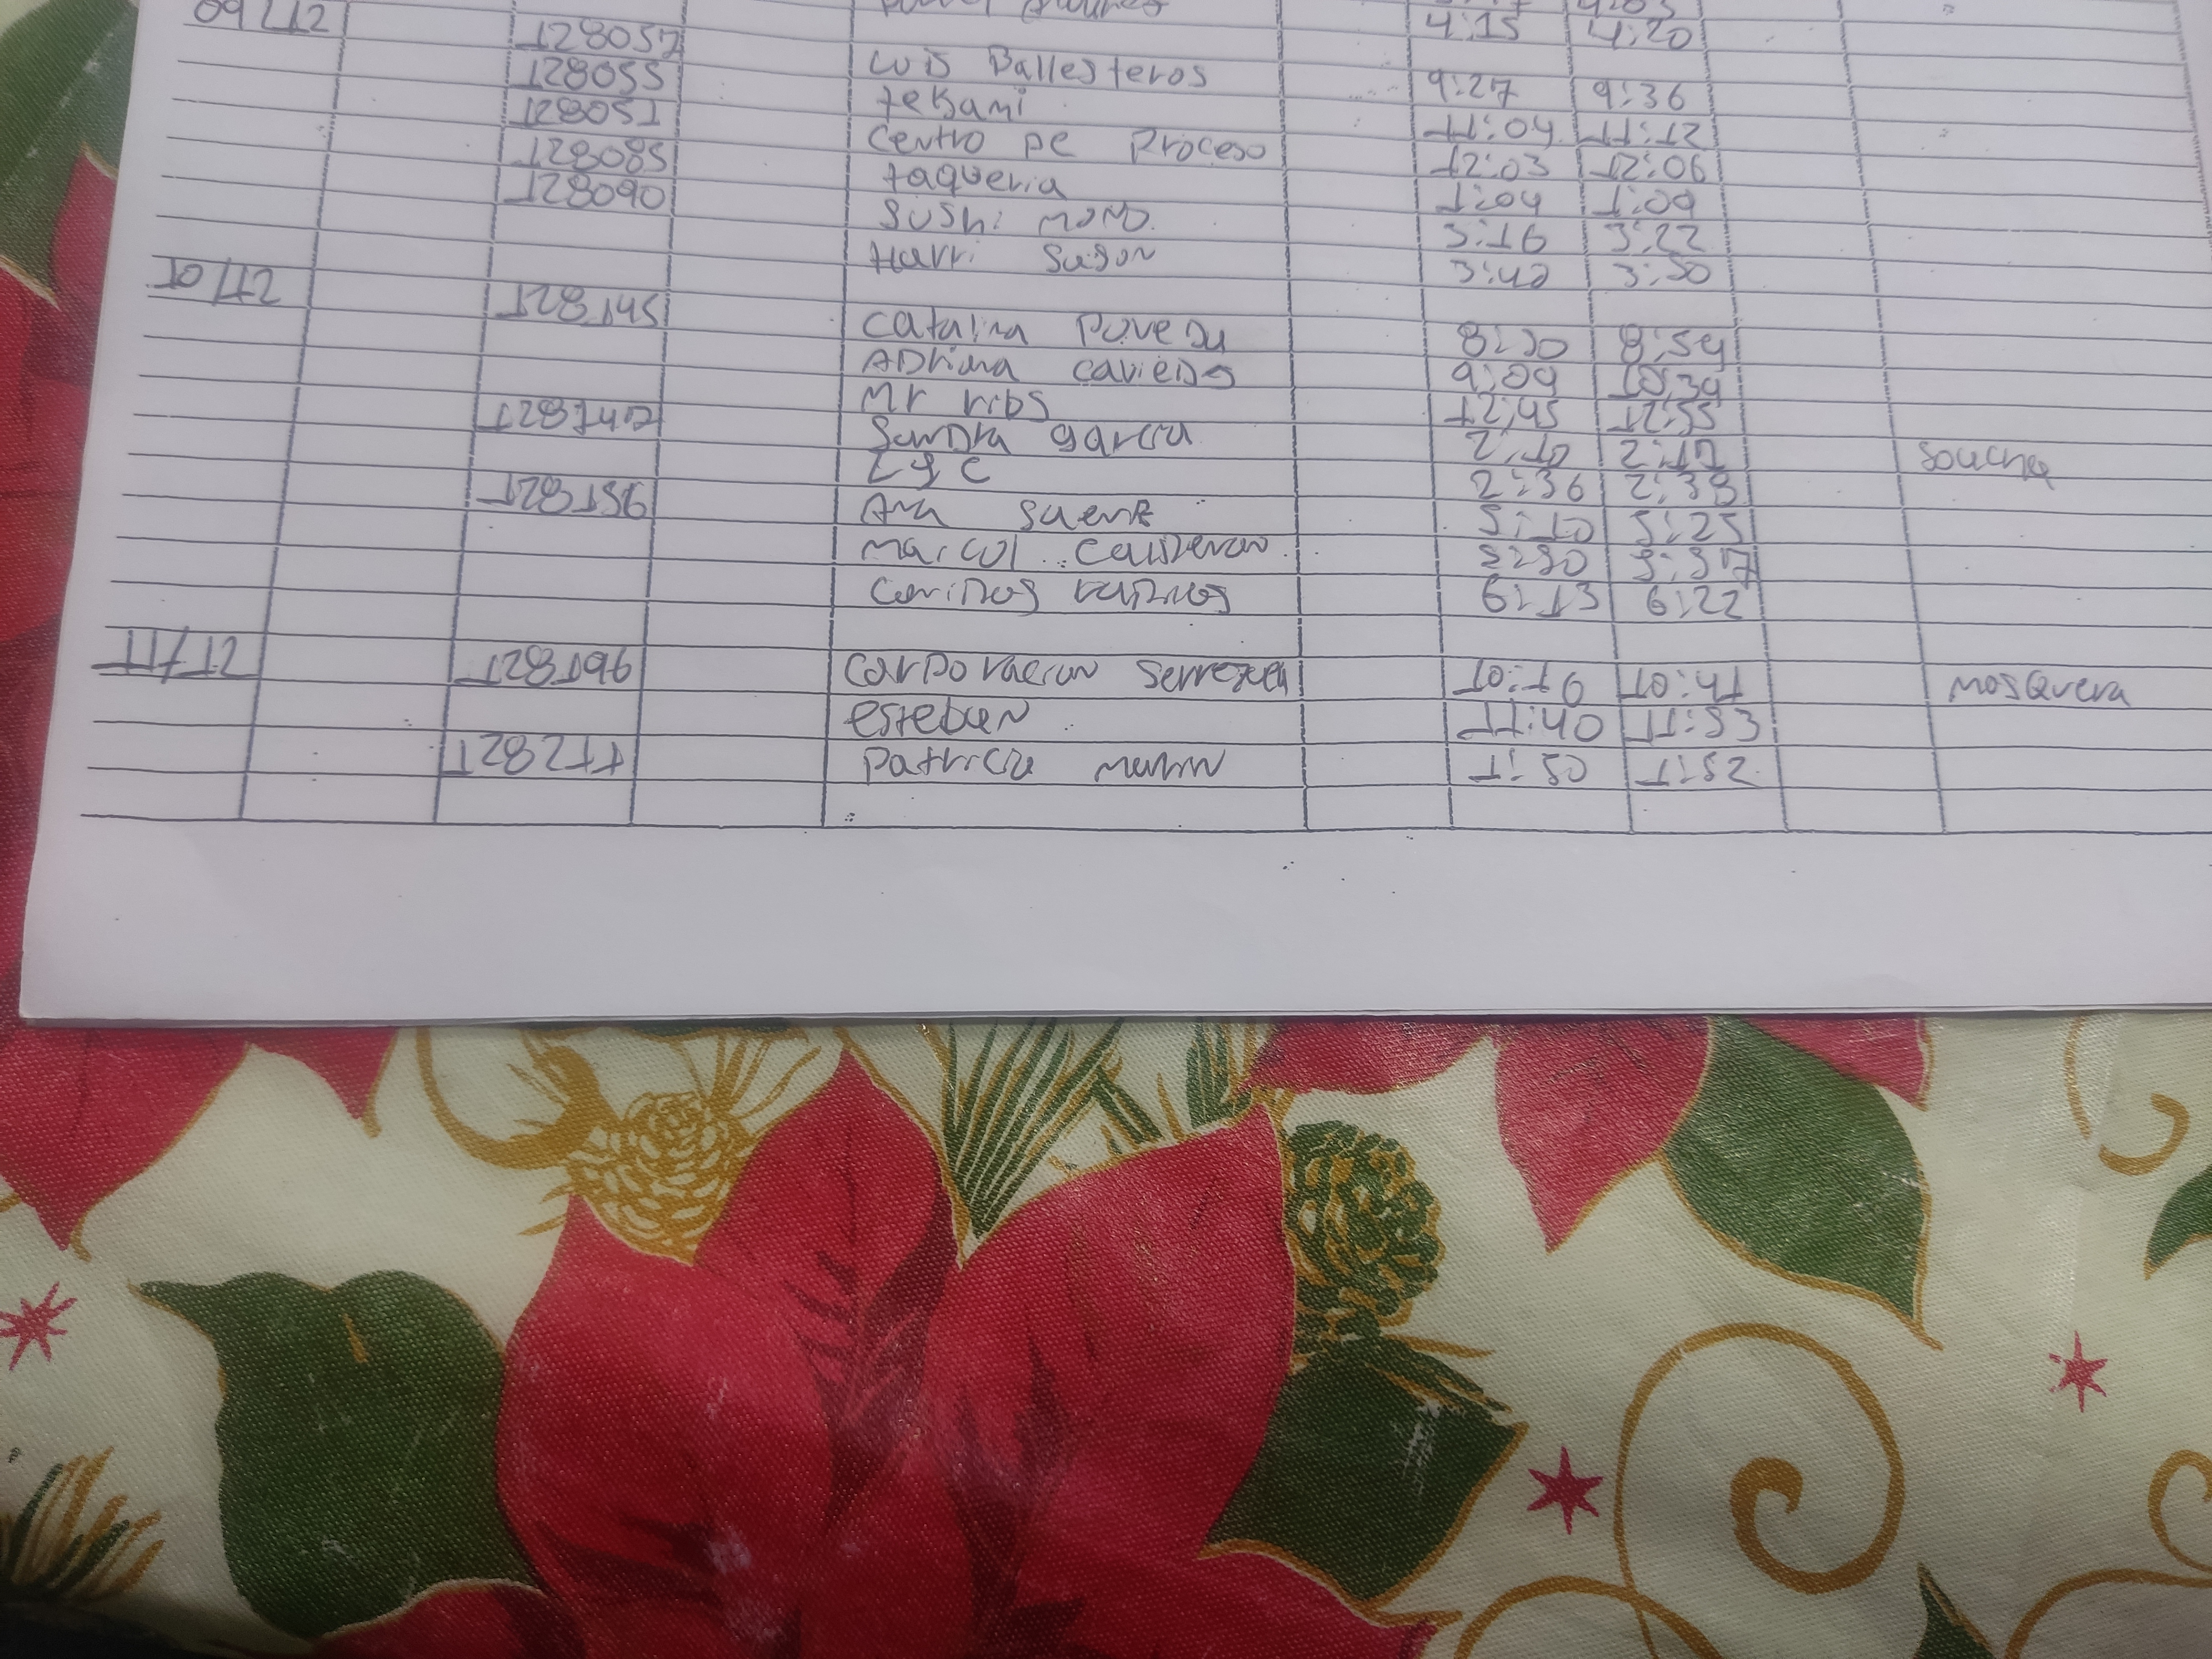 4:15 4:20
09/12 128057 Luis Ballesteros 9:27 9:36
128055 tekami 11:04 11:12
128051 Centro De Proceso 12:03 12:06
128085 taqueria 1:04 1:09
128090 Sushi 3:16 3:22
Harri Sason 3:42 3:50
10/12 128145 Catalina Poveda 8:50 8:54
ADriana caviedes 9:09 10:34
Mr ribs 12:45 12:55
128147 Sandra garcia 2:10 2:17 Soacha
2:36 2:38
128156 Ana saenz 5:10 5:25
Maicol Calderon 5:30 5:37
6:13 6:22
11/12 128196 Corporacion Serrezuela 10:16 10:41 Mosquera
esteban 11:40 11:53
128211 Patricia marin 1:50 1:52